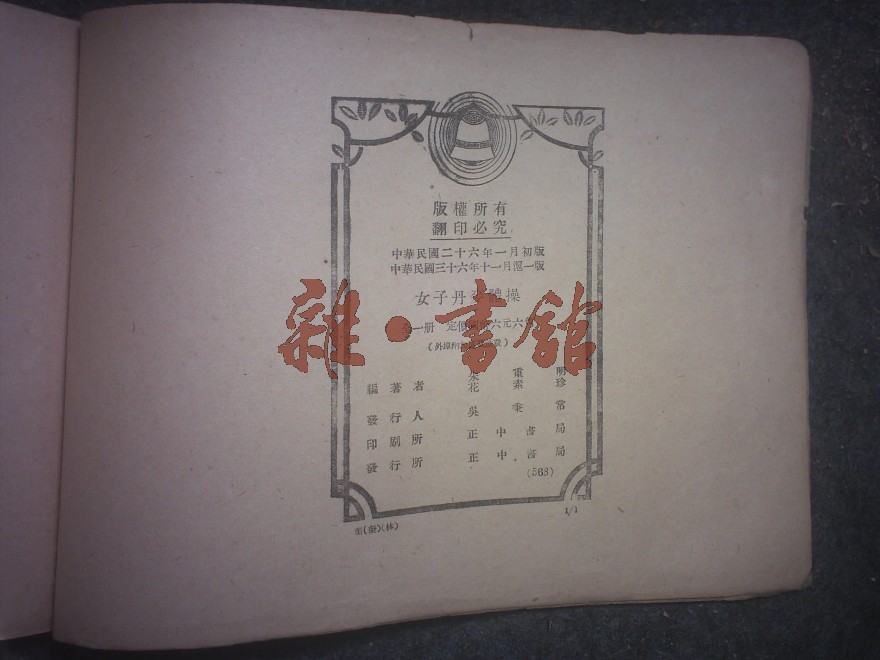 版權所有
翻印必究
中華民國二十六年一月初版
中華民國三十六年十一月滬一版
女子丹麥體操
全一册 定價 六元六角
(外埠
編著者 電明
花素珍
發行人 吳秉常
印刷所 正中書局
發行所 正中書局
(568)
1/1
(林)
雜·書館